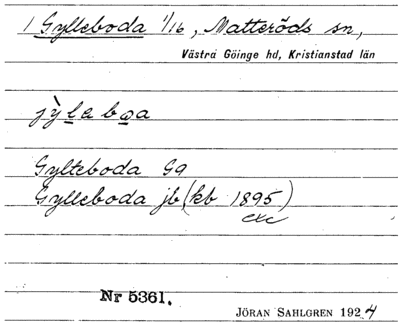 1 Gylleboda 1/16, Matteröds sn,
Västra Göinge hd, Kristianstad län
jỳlabωa
Gylteboda Ga
Gylleboda jb (kb 1895)
exc
Nr 5361.
JÖRAN SAHLGREN 1924